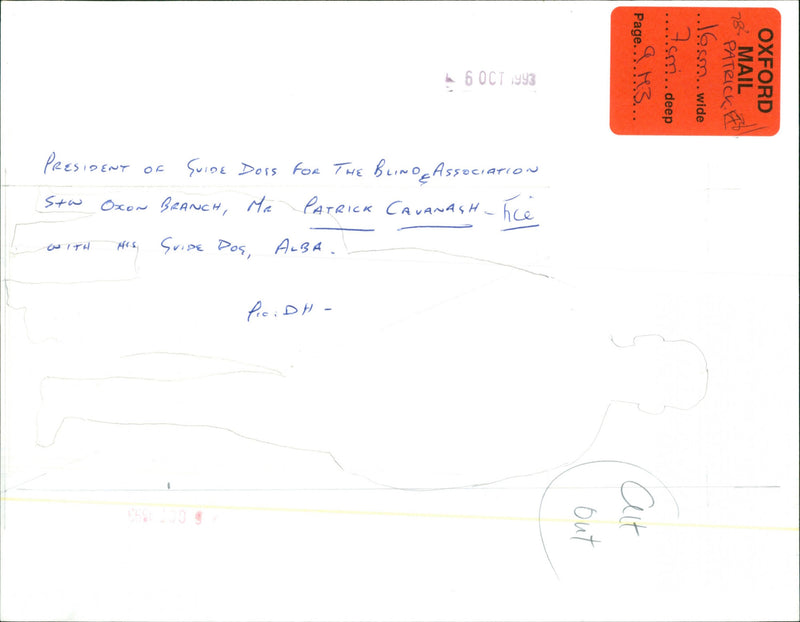 6 OCT 1993
OXFORD
MAIL
PATRICK
16cm wide
7cm deep
Page 9 M3
PRESIDENT OF GUIDE DOGS FOR THE BLIND ASSOCIATION
S+W OXON BRANCH, MR PATRICK CAVANAGH -
WITH HIS GUIDE DOG, ALBA.
Pic: DH -
Cut
out